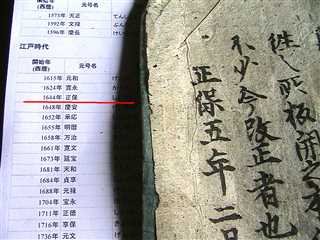 (西暦)
元号名
1573年 天正
1592年 文禄
1596年 慶長
江戸時代
開始年
(西暦)
元号名
1615年 元和
1624年 寛永
1644年 正保
1648年 慶安
1652年 承応
1655年 明暦
1658年 万治
1661年 寛文
1673年 延宝
1681年 天和
1684年 貞享
1688年 元禄
1704年 宝永
1711年 正徳
1716年 享保
1736年 元文
板開之
不少今改正者也
正保五年二